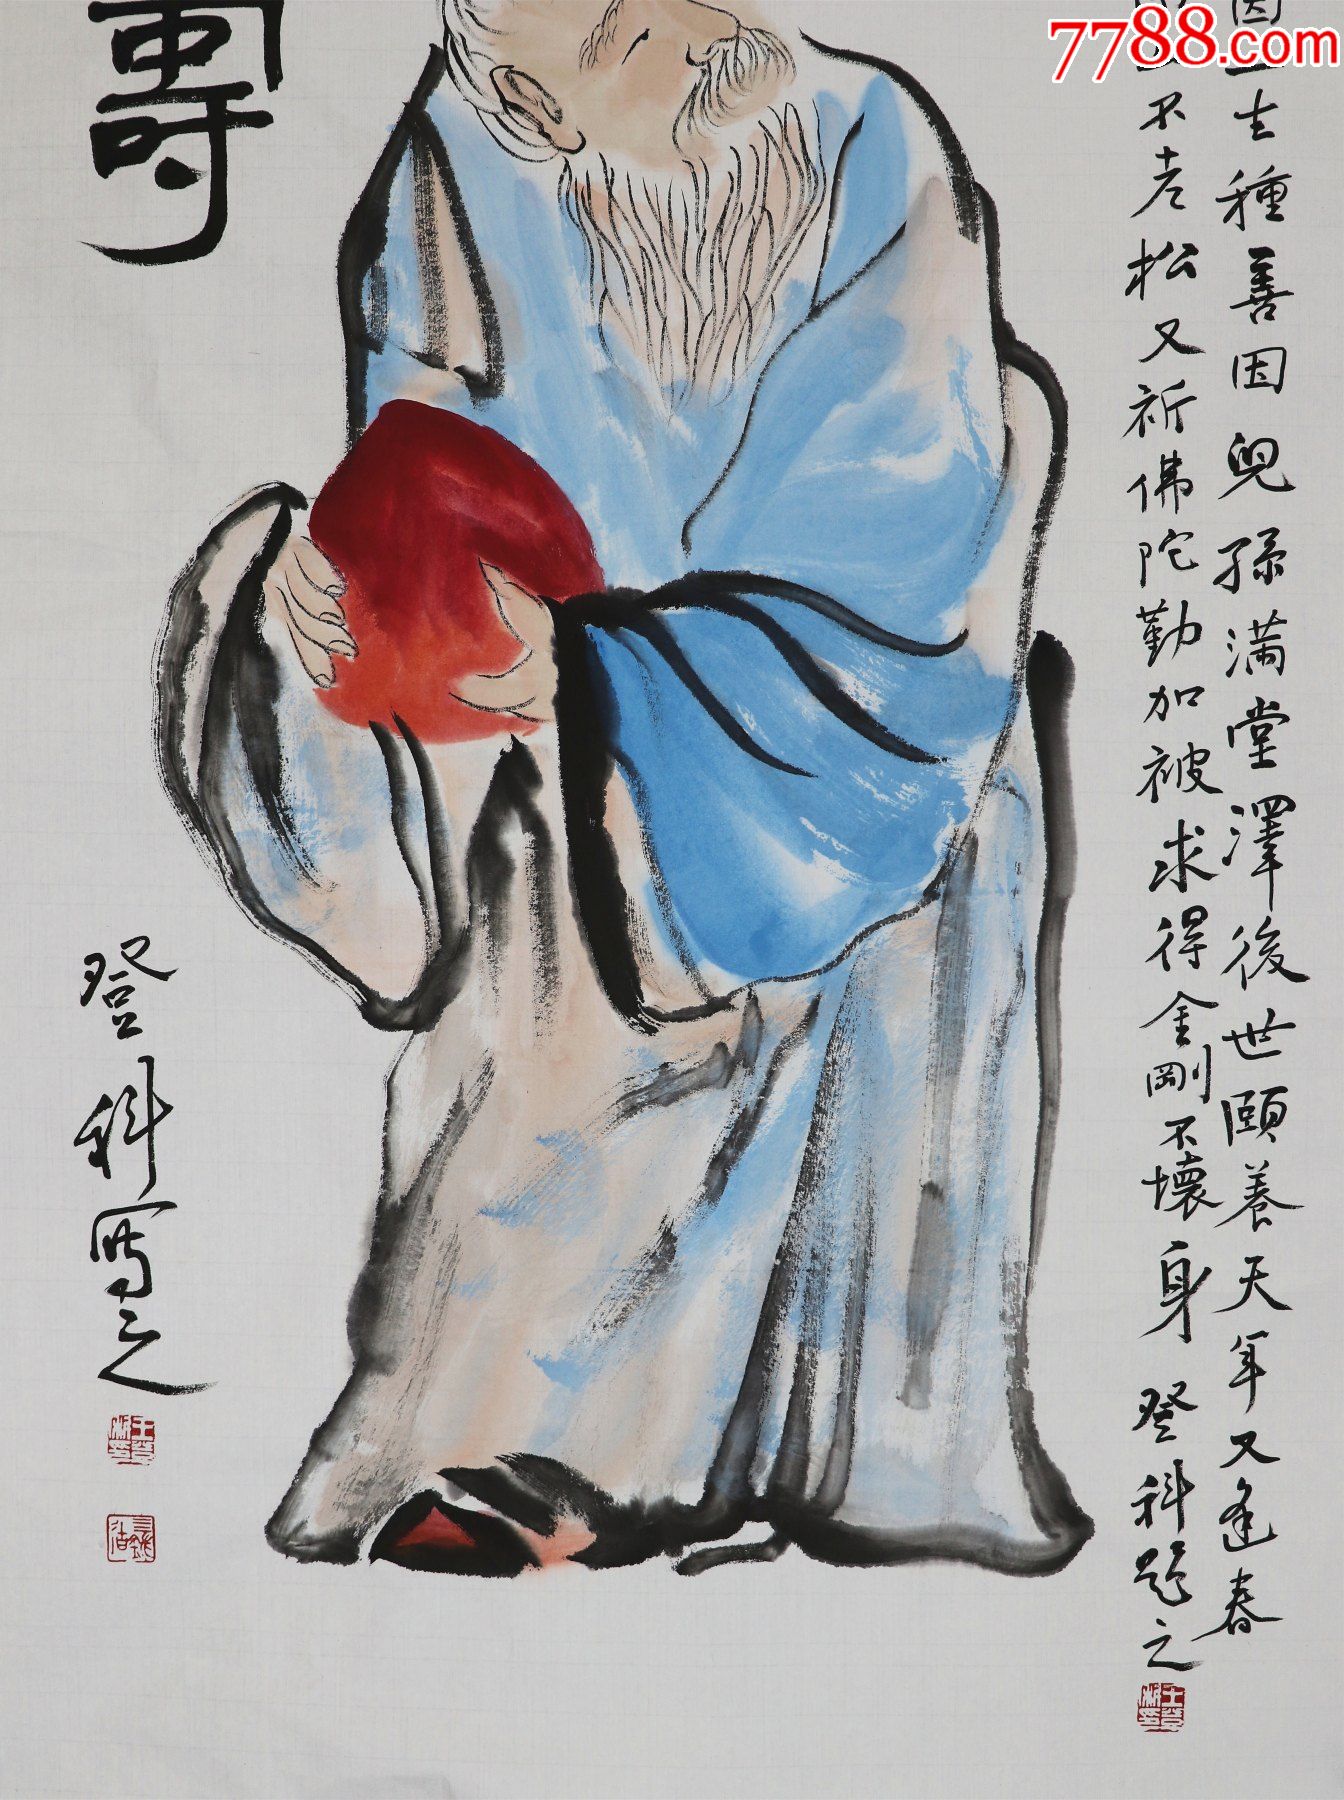 7788.com
因一生種善因兒孫满堂澤後世頤養天年又逢春
不老松又祈佛陀勤加被求得金剛不壞身 登科题之
壽
登科写之